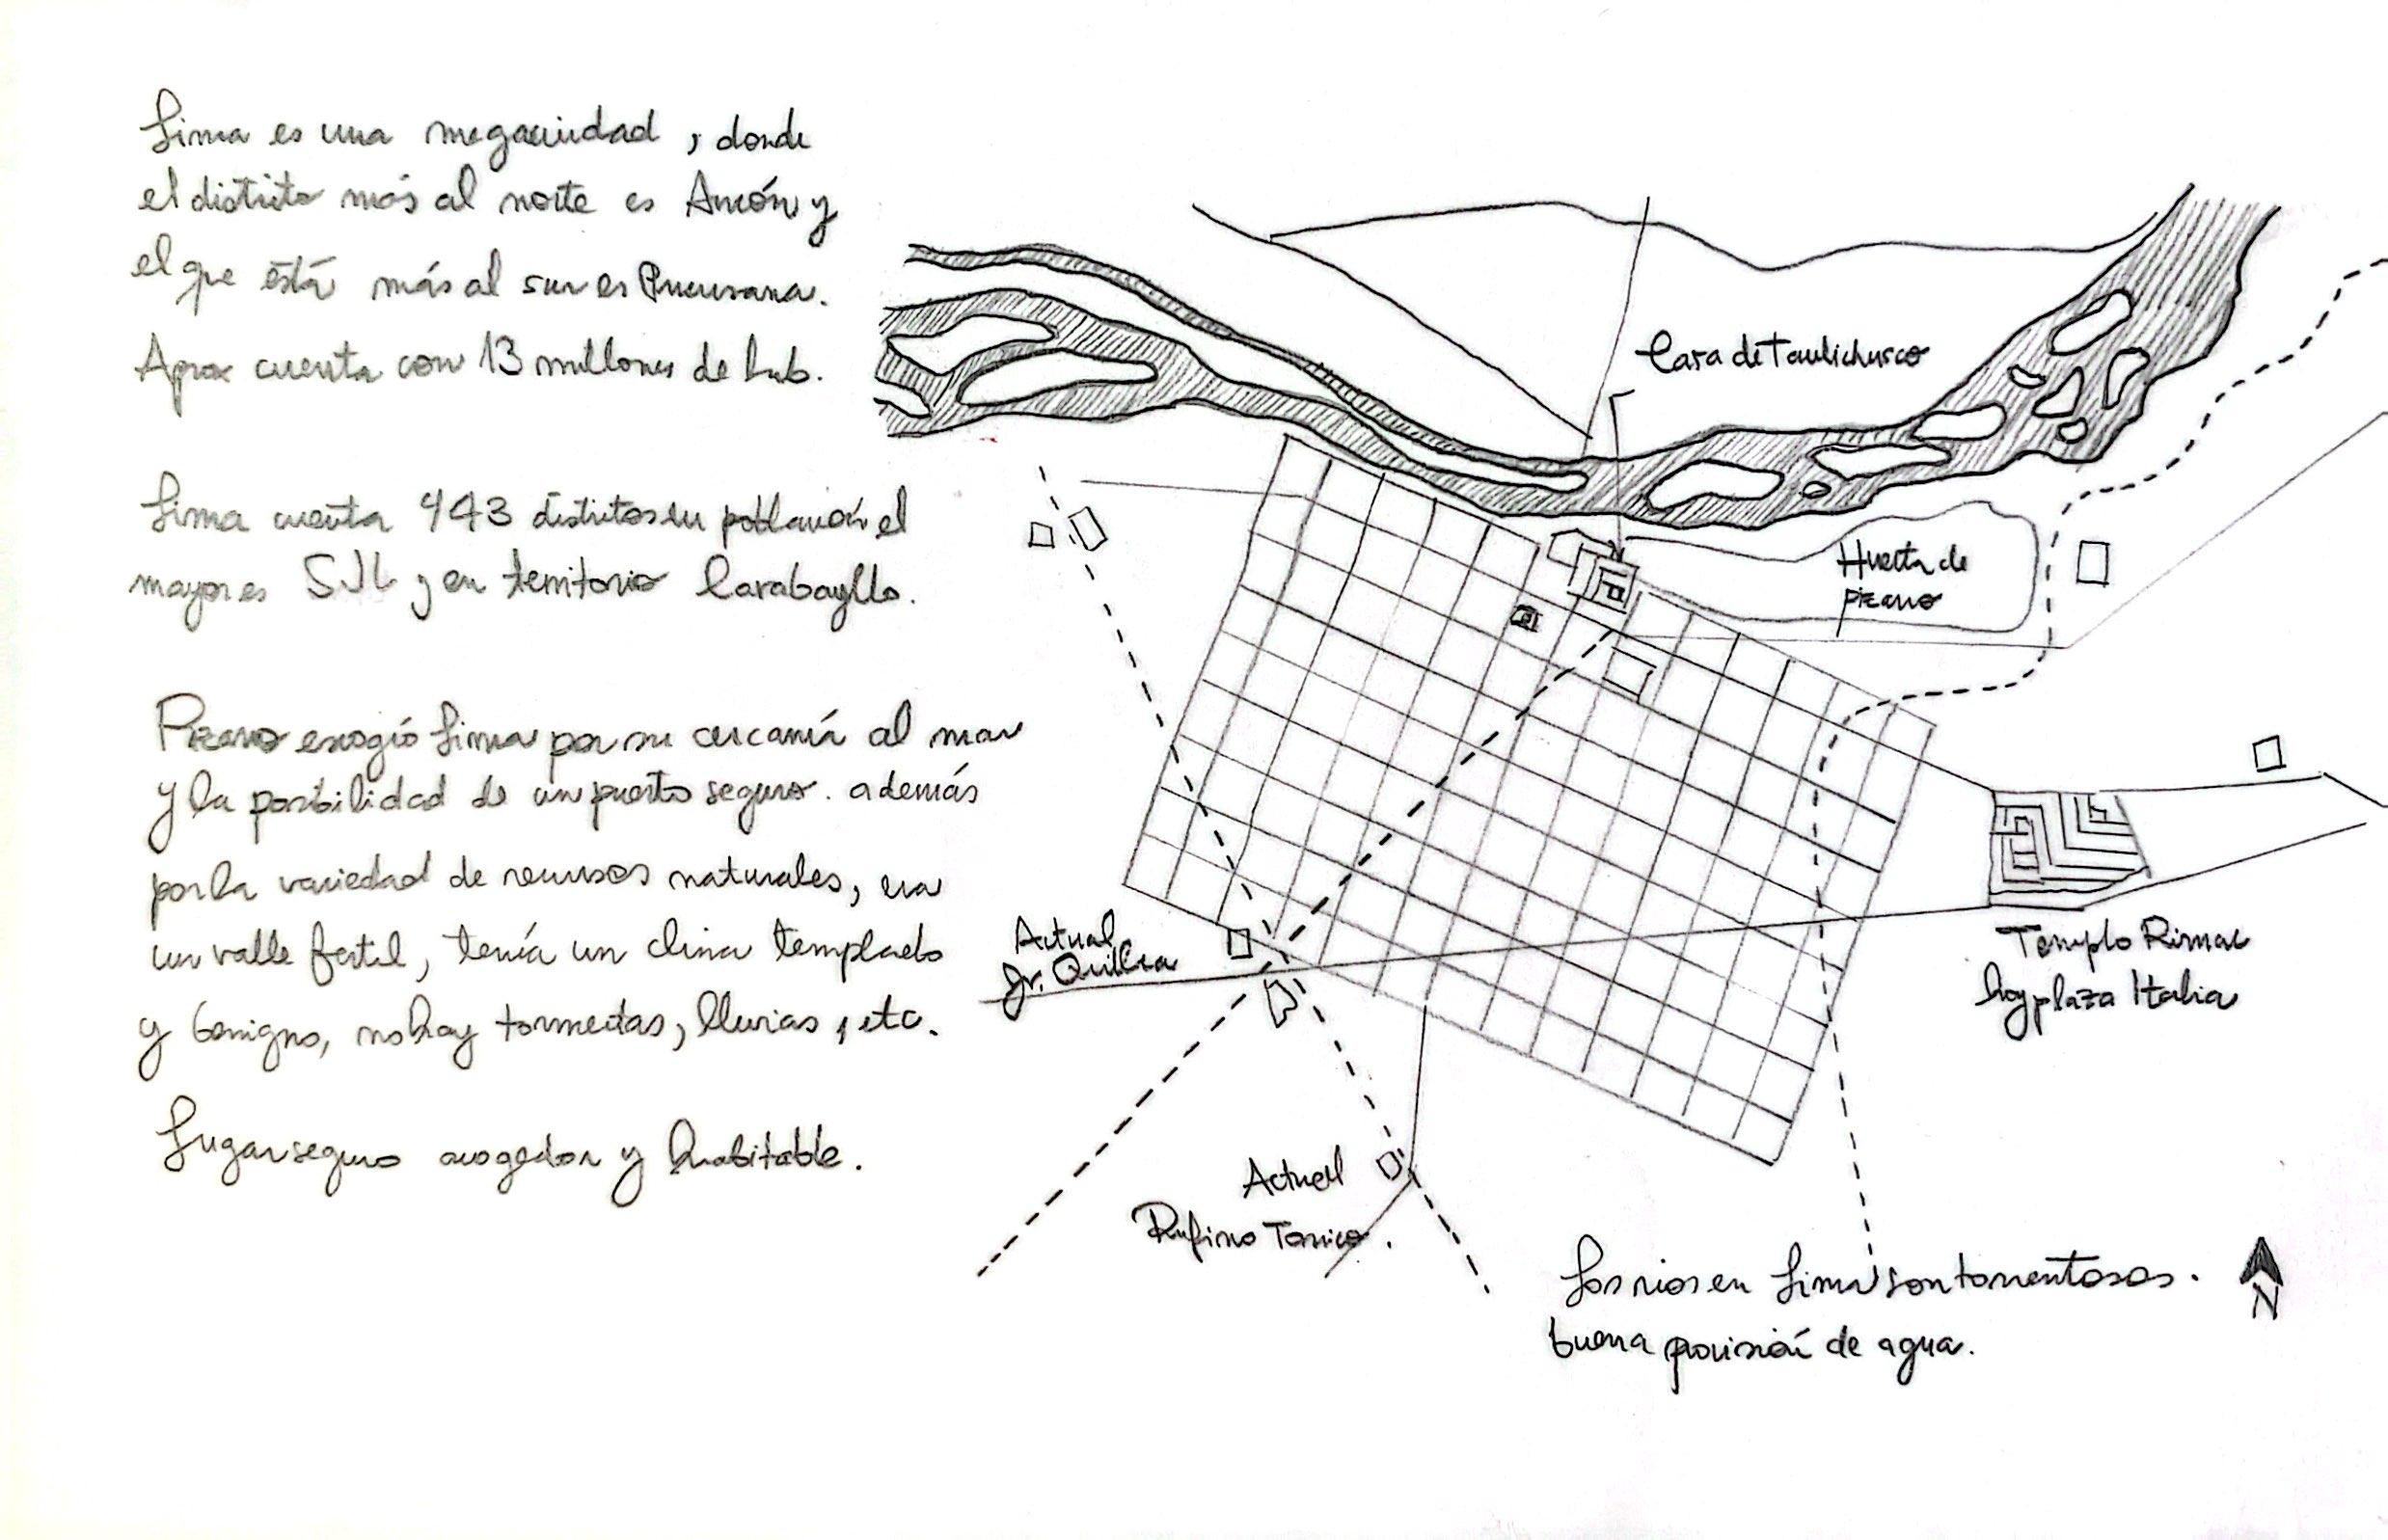 Lima es una megaciudad, donde
el distrito más al norte es Ancón y
el que está más al sur es Pucusana.
Aprox cuenta con 13 millones de hab.
Lima cuenta 443 distritos en población el
mayor es SJL y en territorio Carabayllo.
Pizarro escogió Lima por su cercanía al mar
y la posibilidad de un puerto seguro. además
por la variedad de recursos naturales, era
un valle fertil, tenía un clima templado
y benigno, no hay tormentas, lluvias, etc.
Lugar seguro acogedor y habitable.
Casa de Taulichusco
Huerta de
Pizarro
Actual
Jr. Quilca
Templo Rimac
hoy plaza Italia
Actual
Rufino Torrico.
Los rios en Lima son torrentosos.
buena provisión de agua.
N